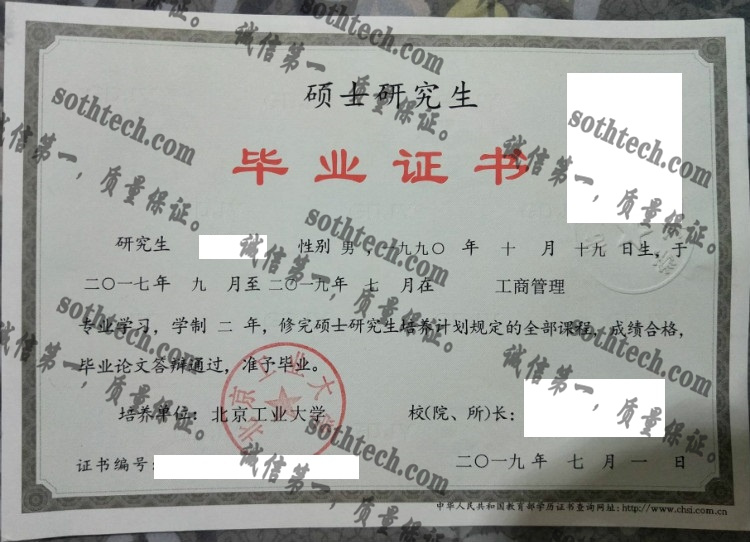 硕士研究生
毕业证书
研究生 性别 男，一九九〇 年 十 月 十九 日生，于
二〇一七年 九 月至二〇一九年 七 月在 工商管理
专业学习，学制 二 年，修完硕士研究生培养计划规定的全部课程，成绩合格，
毕业论文答辩通过，准予毕业。
培养单位：北京工业大学 校(院、所)长：
证书编号：
二〇一九年 七 月 一 日
中华人民共和国教育部学历证书查询网址：http://www.chsi.com.cn
北京工业大学
sothtech.com
诚信第一，质量保证。
sothtech.com
诚信第一，质量保证。
sothtech.com
诚信第一，质量保证。
sothtech.com
诚信第一，质量保证。
sothtech.com
诚信第一，质量保证。
sothtech.com
诚信第一，质量保证。
sothtech.com
诚信第一，质量保证。